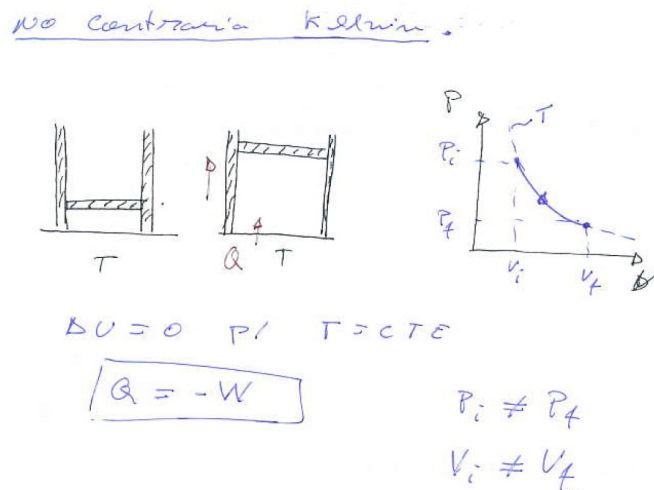 No contraria Kelvin.
P
T
Pi
Pf
Vi Vf
T
Q T
ΔU = 0 p/ T = CTE
Q = -W
Pi ≠ Pf
Vi ≠ Vf